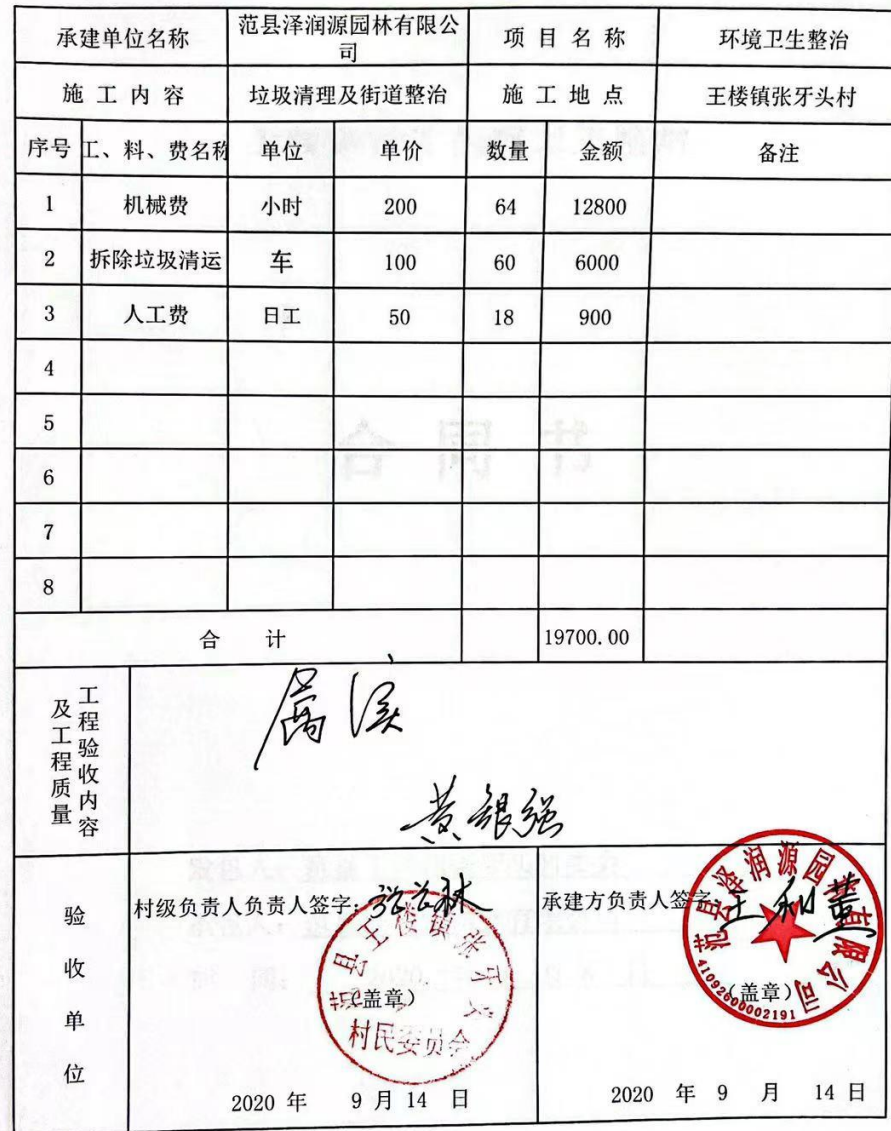 承建单位名称 范县泽润源园林有限公司 项目名称 环境卫生整治
施工内容 垃圾清理及街道整治 施工地点 王楼镇张牙头村
序号 工、料、费名称 单位 单价 数量 金额 备注
1 机械费 小时 200 64 12800
2 拆除垃圾清运 车 100 60 6000
3 人工费 日工 50 18 900
4
5
6
7
8
合 计 19700.00
工程验收内容及工程质量
属实
黄银强
验收单位
村级负责人负责人签字:
范县王楼镇张牙头
(盖章)
村民委员会
2020 年 9 月 14 日
承建方负责人签字
范县泽润源园林有限公司
(盖章)
41092600002191
2020 年 9 月 14 日